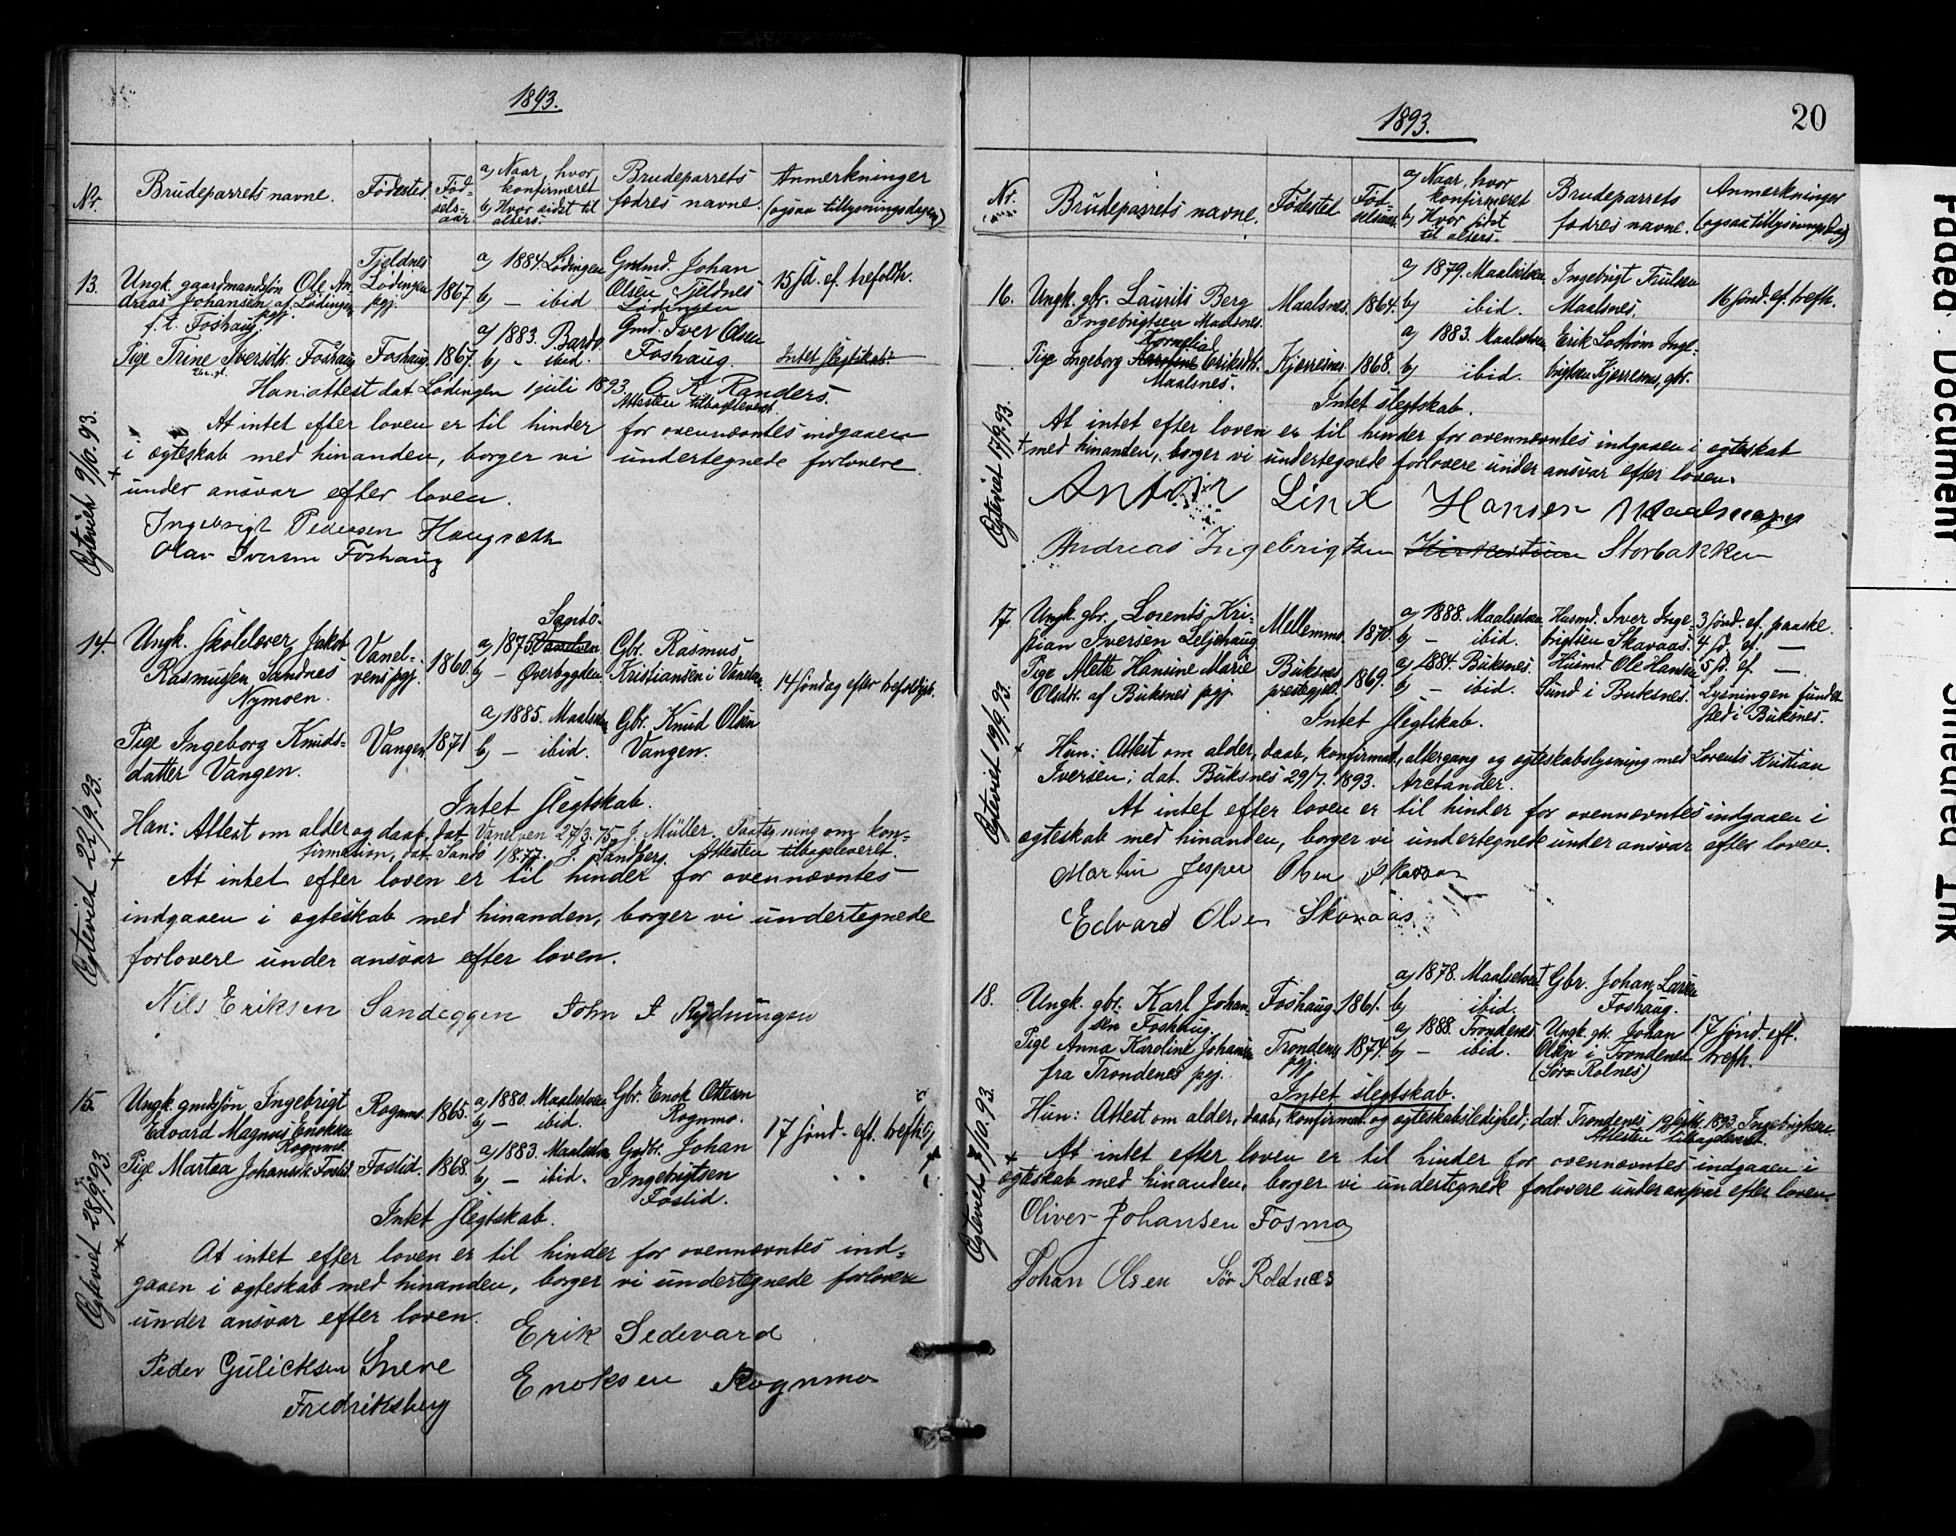 1893.
Nr.
Brudeparrets navne.
Fødested
Fød-
sels-
aar.
a) Naar, hvor
konfirmeret
b) Hvor sidst til
alters.
Brudeparrets
fædres navne.
Anmerkninger
(ogsaa tillysningsdagen)
13.
Ungk. gaardmandssøn Ole An-
dreas Johansen af Lødingen
pgj.
f. t. Foshaug.
Tjeldnes
Lødingen
pgj.
1867.
a) 1884. Lødingen
b) — ibid
Grdmd. Johan
Olsen Tjeldnes
Lødingen
15 sd. ef. trefoldh.
Pige Trine Iversdtr. Foshaug
Foshaug.
1867.
a) 1883. Bardo
b) — ibid.
Gmd. Iver Olsen
Foshaug
Intet slegtskab.
Han: attest dat Lødingen 1 juli 1893. O. K. Randers.
Attesten tilbageleveret.
At intet efter loven er til hinder for ovennævntes indgaaen
i ægteskab med hinanden, borger vi undertegnede forlovere
under ansvar efter loven.
Ingebrigt Pedersen Haugsæth
Olav Iversen Foshaug
Ægteviet 9/10. 93.
14.
Ungk. Skoleelever Jakob
Rasmussen Sandnes
Nymoen.
Vanel-
vens pgj.
1860.
Sandø.
a) 1875 Vanelven
b) — Øverbygden
Gbr. Rasmus
Kristiansen i Vanelven.
14 søndag efter trefoldigh.
Pige Ingeborg Knuds-
datter Vangen.
Vangen.
1871
a) 1885. Maalselven
b) — ibid.
Gbr. Knud Olsen
Vangen.
Intet slegtskab.
Han: Attest om alder og daab, dat Vanelven 27/3. 75, J. Müller. Paategning om kon-
firmation, dat. Sandø 1/8.77. J. Sandberg. Attesten tilbageleveret.
At intet efter loven er til hinder for ovennævntes
indgaaen i ægteskab med hinanden, borger vi undertegnede
forlovere under ansvar efter loven.
Nils Eriksen Sandeggen John J Rydningen
Ægteviet 22/9. 93.
15.
Ungk. gmdssøn Ingebrigt
Edvard Magnus Enoksen
Rognmo.
Rognmo.
1865.
a) 1880. Maalselven
b) — ibid.
Gbr. Enok Ottesen
Rognmo.
17 sønd. eft. trefh.
Pige Martea Johansdtr. Foslid.
Foslid.
1868.
a) 1883. Maalselven
b) — ibid.
Gdbr. Johan
Ingebrigtsen
Foslid.
Intet slegtskab.
At intet efter loven er til hinder for ovennævntes ind-
gaaen i ægteskab med hinanden, borger vi undertegnede forlovere
under ansvar efter loven.
Erik Sedevard
Enoksen Rognmo
Peder Gulicksen Snere
Fredriksberg
Ægteviet 28/9. 93.
1893.
20
Nr.
Brudeparrets navne.
Fødested
Fød-
selsaar.
a) Naar, hvor
konfirmeret
b) Hvor sidst
til alters.
Brudeparrets
fædres navne.
Anmerkninger
(ogsaa tillysningsdag)
16.
Ungk. gbr. Laurits Berg
Ingebrigtsen Maalsnes.
Maalsnes.
1864.
a) 1879. Maalselven
b) ibid.
Ingebrigt Trulsen
Maalsnes.
16 sønd. ef. trefh.
Pige Ingeborg Karoline Eriksdtr.
Cornelia
Maalsnes.
Kjerresnes.
1868.
a) 1883. Maalselven
b) ibid.
Erik Lostrøm Inge-
brigtsen Kjerresnes, gbr.
Intet slegtskab.
At intet efter loven er til hinder for ovennævntes indgaaen i ægteskab
med hinanden, borger vi undertegnede forlovere under ansvar efter loven.
Anton Lind Hansen Maalsnes
Andreas Ingebrigtsen Storbakken
Ægteviet 17/9. 93.
17
Ungk. gbr. Lorents Kri-
stian Iversen Leljehaug
Mellemmo.
1870.
a) 1888. Maalselven
b) — ibid.
Husmd. Iver Inge-
brigtsen Skavaas.
3 sønd. ef. paaske.
4 sd. ef. —
5 sd. ef. —
Pige Mette Hansine Marie
Olsdtr. af Buksnes pgj.
Buksnes
prestegjeld.
1869.
a) 1884. Buksnes.
b) — ibid.
Husmd Ole Hansen
Sund i Buksnes.
Lysningen fundet
sted i Buksnes.
Intet slegtskab.
Hun: Attest om alder, daab, konfirmat., altergang og ægteskabslysning med Lorents Kristian
Iversen; dat. Buksnes 29/7. 1893. Arctander.
At intet efter loven er til hinder for ovennævntes indgaaen i
ægteskab med hinanden, borger vi undertegnede under ansvar efter loven.
Martin Jesper Olsen Skavaas
Edvard Olsen Skavaas
Ægteviet 19/9. 93.
18.
Ungk. gbr. Karl Johan-
sen Foshaug.
Foshaug.
1861.
a) 1878. Maalselven
b) ibid.
Gbr. Johan Larsen
Foshaug.
Pige Anna Karoline Johansen
fra Trondenes pgj.
Trondenes
pgj.
1874.
a) 1888. Trondenes
b) — ibid.
Ungk. gbr. Johan
Olsen i Trondenes
(Sør-Rolnes)
17 sønd. eft.
trefh.
Intet slegtskab.
Hun: Attest om alder, daab, konfirmat. og ægteskabsledighed; dat. Trondenes 19 Septb. 1893. Ingebrigtsen.
Attesten tilbageleveret.
At intet efter loven er til hinder for ovennævntes indgaaen i
ægteskab med hinanden, borger vi undertegnede forlovere under ansvar efter loven.
Oliver Johansen Fosmo
Johan Olsen Sør Roldnæs
Ægteviet 1/10. 93.
Faded Document
Smeared Ink